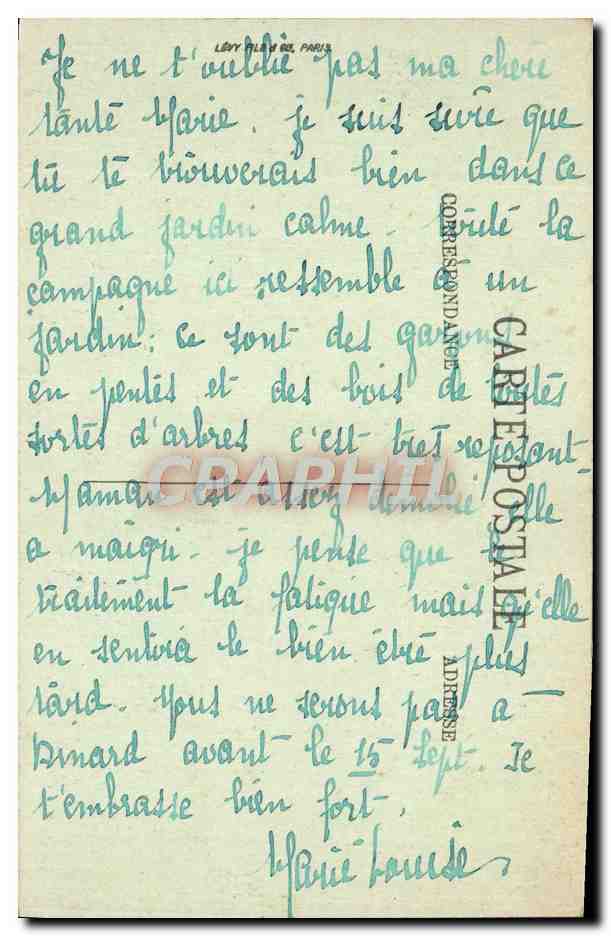 LÉVY FILS & Cie, PARIS
Je ne t'oublie pas ma chère
tante Marie. je suis sure que
tu te trouverais bien dans ce
grand jardin calme. toute la
campagne ici ressemble à un
jardin; ce sont des gazons
en pentes et des bois de toutes
sortes d'arbres c'est très reposant.
Maman est assez démolie elle
a maigri. je pense que le
traitement la fatigue mais qu'elle
en sentira le bien être plus
tard. Nous ne serons pas à
Dinard avant le 15 Sept. Je
t'embrasse bien fort.
Marie Louise
CARTE POSTALE
CORRESPONDANCE
ADRESSE
CRAPHIL